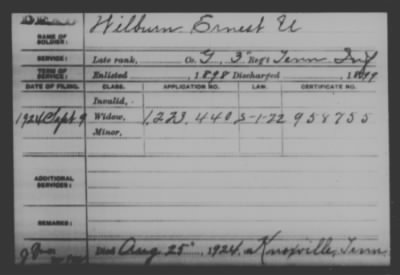 NAME OF SOLDIER: Wilburn Ernest U
SERVICE: Late rank, Co. G, 3" Reg't Tenn Inf
TERM OF SERVICE: Enlisted , 1898 Discharged , 1899
DATE OF FILING. CLASS. APPLICATION NO. LAW. CERTIFICATE NO.
Invalid,
1924 Sept 9 Widow, 1,223,440 5-1-22 958755
Minor,
ADDITIONAL SERVICES:
REMARKS:
Died Aug 25", 1924, at Knoxville, Tenn.